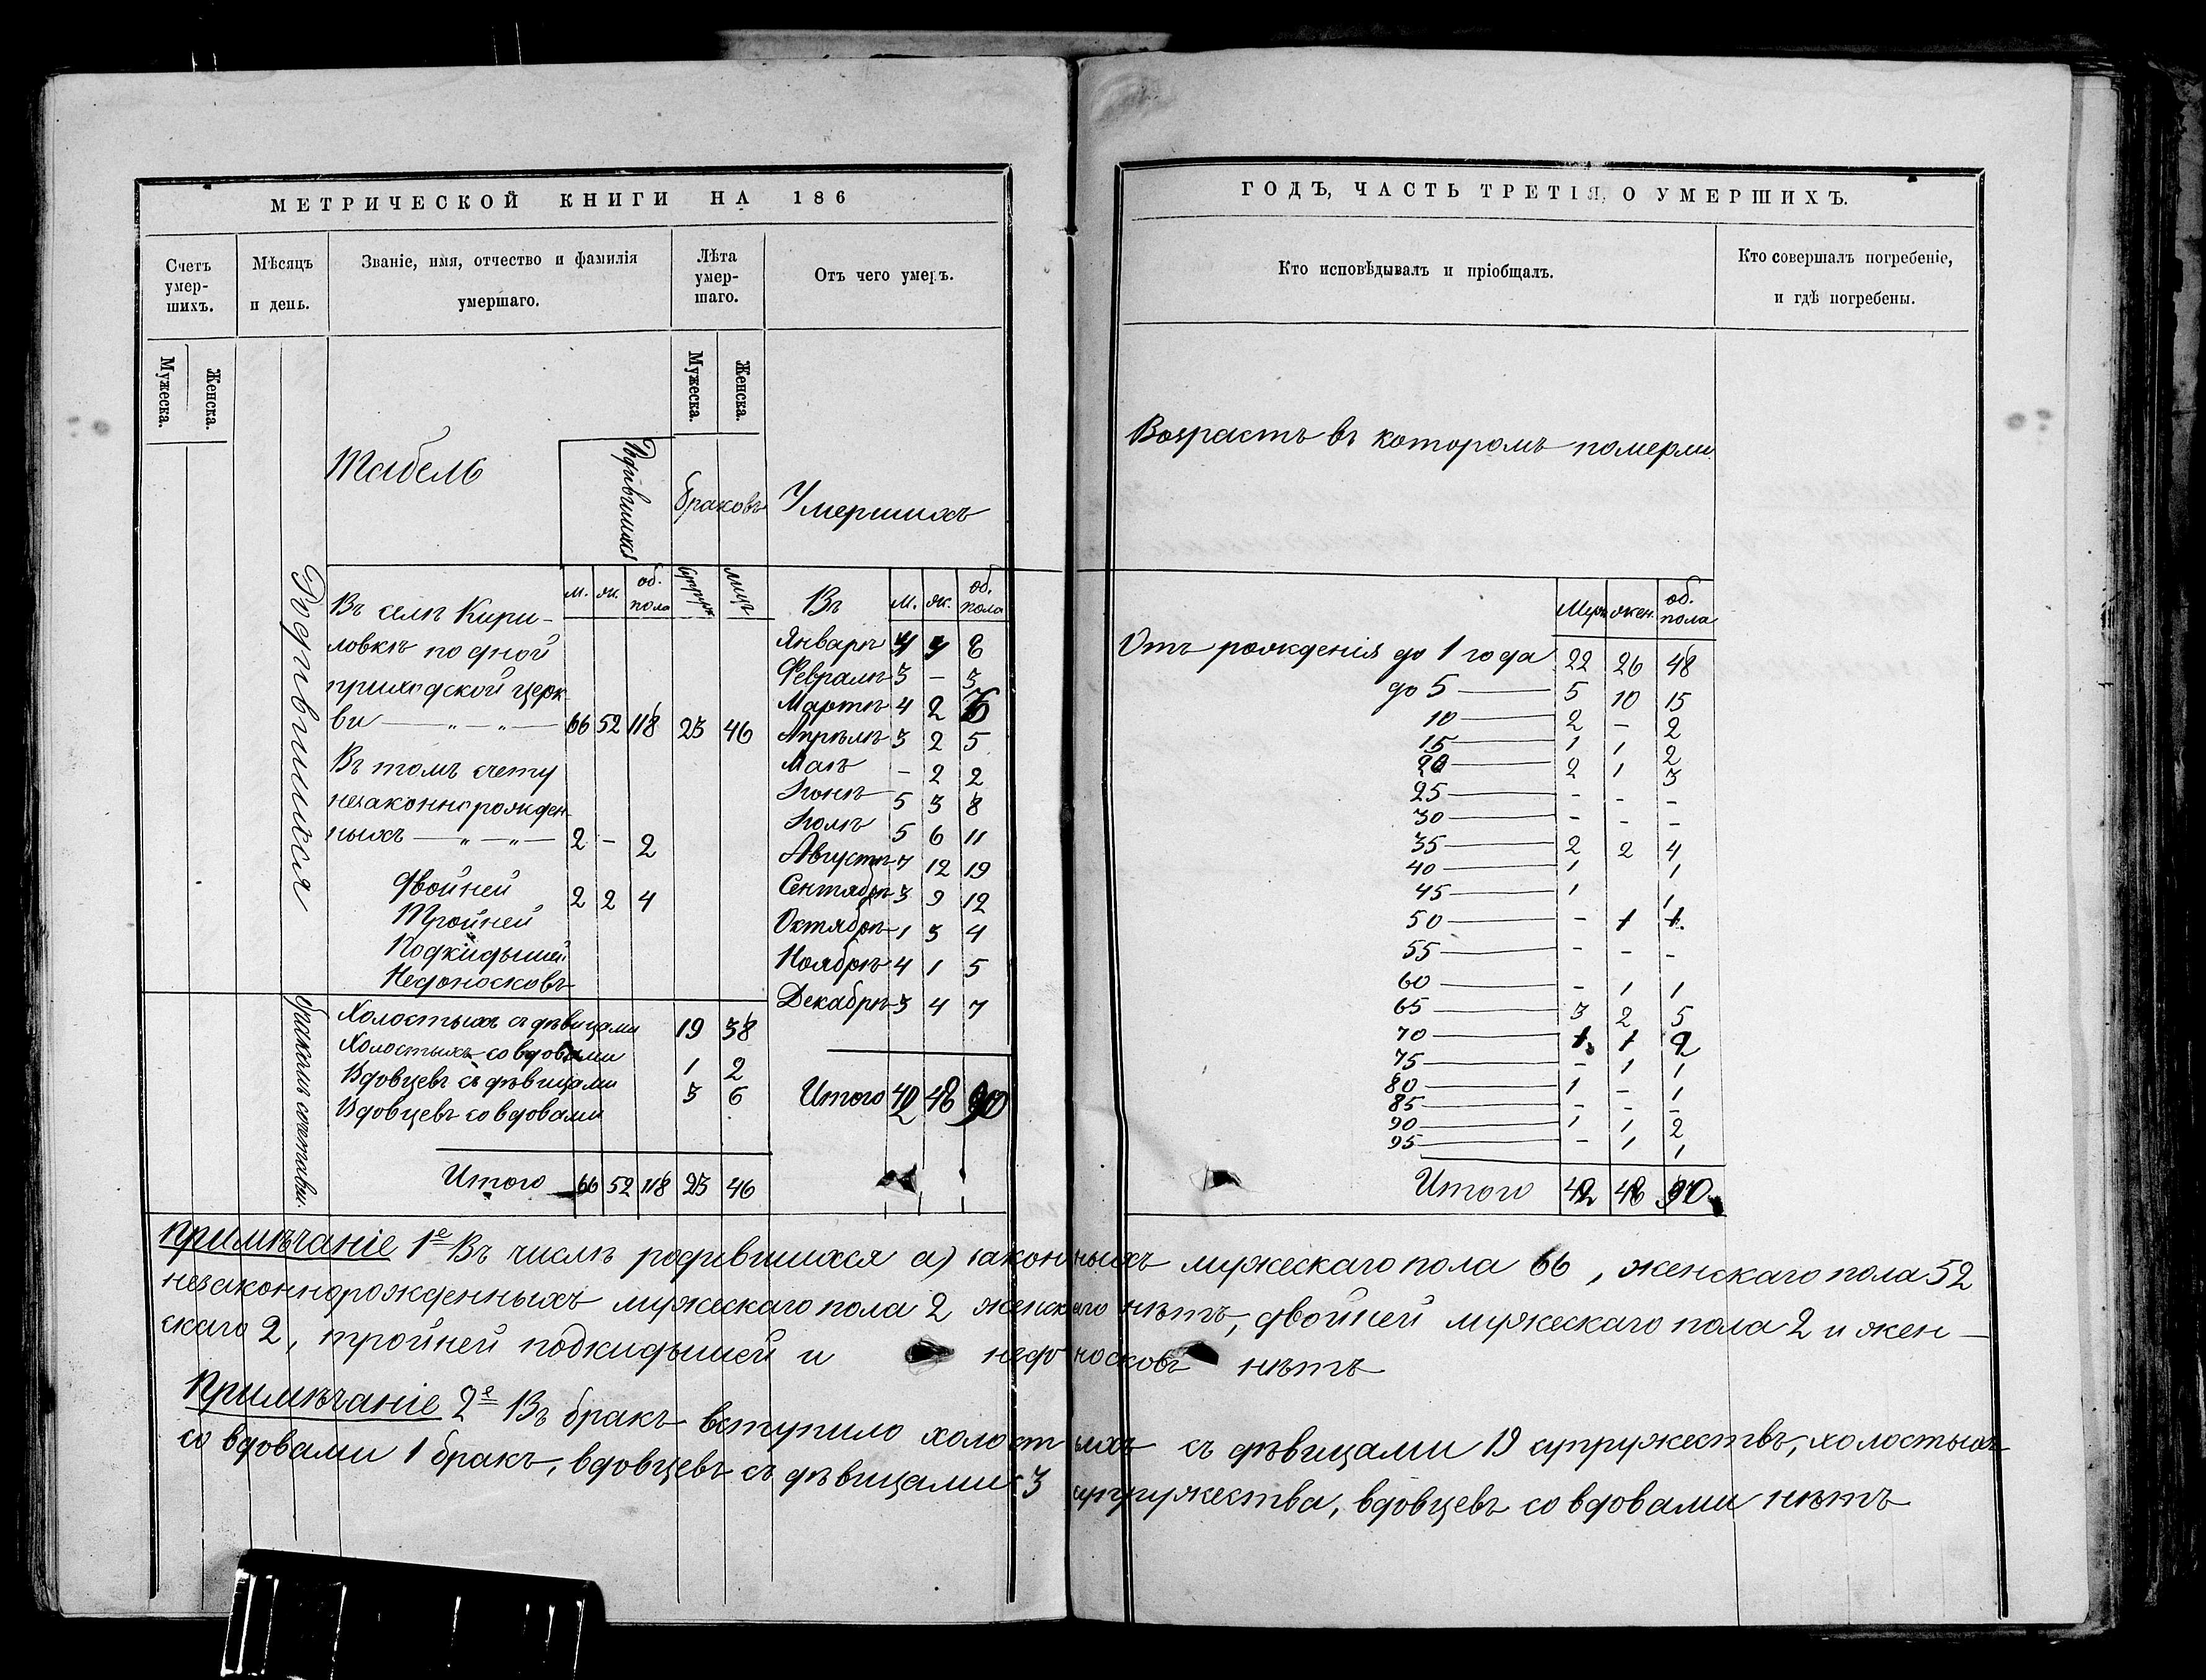 МЕТРИЧЕСКОЙ КНИГИ НА 186
Счетъ умер-шихъ.
Мѣсяцъ и день.
Званіе, имя, отчество и фамилія умершаго.
Лѣта умер-шаго.
Отъ чего умеръ.
Мужеска.
Женска.
Мужеска.
Женска.
Табель
Родившихся
браковъ
Умершихъ
Родившихся
м. ж. об. пола
лицъ
Въ м. ж. об. пола
Въ селѣ Кири-
ловкѣ по дной
приходской церк-
ви — „ — „ — 66 52 118 23 46
Въ томъ счету
незаконнорожден-
ныхъ — „ — „ — 2 – 2
Двойней 2 2 4
Тройней
Подкидышей
Недоносковъ
Январѣ 4 8
Февралѣ 3 – 3
Мартѣ 4 2 6
Апрѣлѣ 3 2 5
Маѣ – 2 2
Іюнѣ 5 3 8
Іюлѣ 5 6 11
Августѣ 7 12 19
Сентябрѣ 3 9 12
Октябрѣ 1 3 4
Ноябрѣ 4 1 5
Декабрѣ 3 4 7
Итого 42 48 90
бракомъ сочетавш.
Холостыхъ съ дѣвицами 19 38
Холостыхъ со вдовами 1 2
Вдовцевъ съ дѣвицами 3 6
Вдовцевъ со вдовами
Итого 66 52 118 23 46
ГОДЪ, ЧАСТЬ ТРЕТІЯ, О УМЕРШИХЪ.
Кто исповѣдывалъ и пріобщалъ.
Кто совершалъ погребеніе, и гдѣ погребены.
Возрастъ въ которомъ померли
Муж. жен. об. пола
Отъ рожденія до 1 года 22 26 48
до 5 — 5 10 15
10 — 2 – 2
15 — 1 1 2
20 — 2 1 3
25 — – – –
30 — – – –
35 — 2 2 4
40 — 1 1
45 — 1 1
50 — – 1 1
55 — – – –
60 — – 1 1
65 — 3 2 5
70 — 1 1 2
75 — – 1 1
80 — 1 – 1
85 — – – –
90 — 1 1 2
95 — – 1 1
Итого 42 48 90
Примѣчаніе 1е Въ числѣ родившихся а) законныхъ мужескаго пола 66, женскаго пола 52
незаконнорожденныхъ мужескаго пола 2 женскаго нѣтъ, двойней мужескаго пола 2 и жен-
скаго 2, тройней подкидышей и недоносковъ нѣтъ
Примѣчаніе 2е Въ бракъ вступило холостыхъ съ дѣвицами 19 супружествъ, холостыхъ
со вдовами 1 бракъ, вдовцевъ съ дѣвицами 3 супружества, вдовцевъ со вдовами нѣтъ